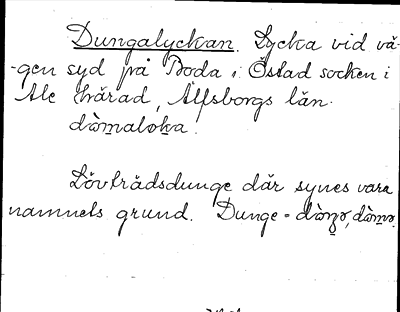 Dungalyckan. Lycka vid vä-
-gen syd på Boda i Östad socken i
Ale härad, Älfsborgs län.
Lövträdsdunge där synes vara
namnets grund. Dunge =